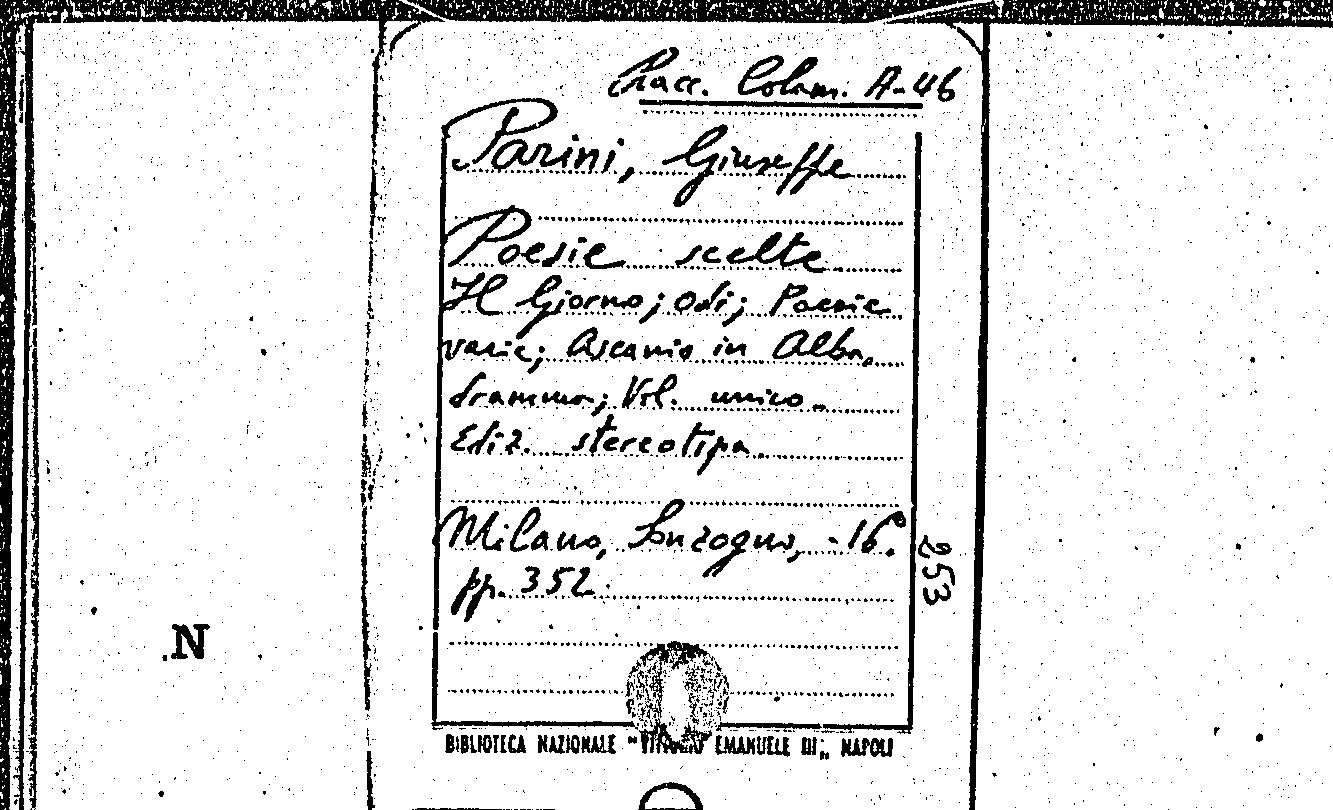 Racc. Colam. A-46
Parini, Giuseppe
Poesie scelte
Il Giorno; Odi; Poesie
varie; Ascanio in Alba,
dramma; Vol. unico.
Ediz. stereotipa.
Milano, Sonzogno, -16°.
pp. 352.
253
N
BIBLIOTECA NAZIONALE "VITTORIO EMANUELE III„ NAPOLI